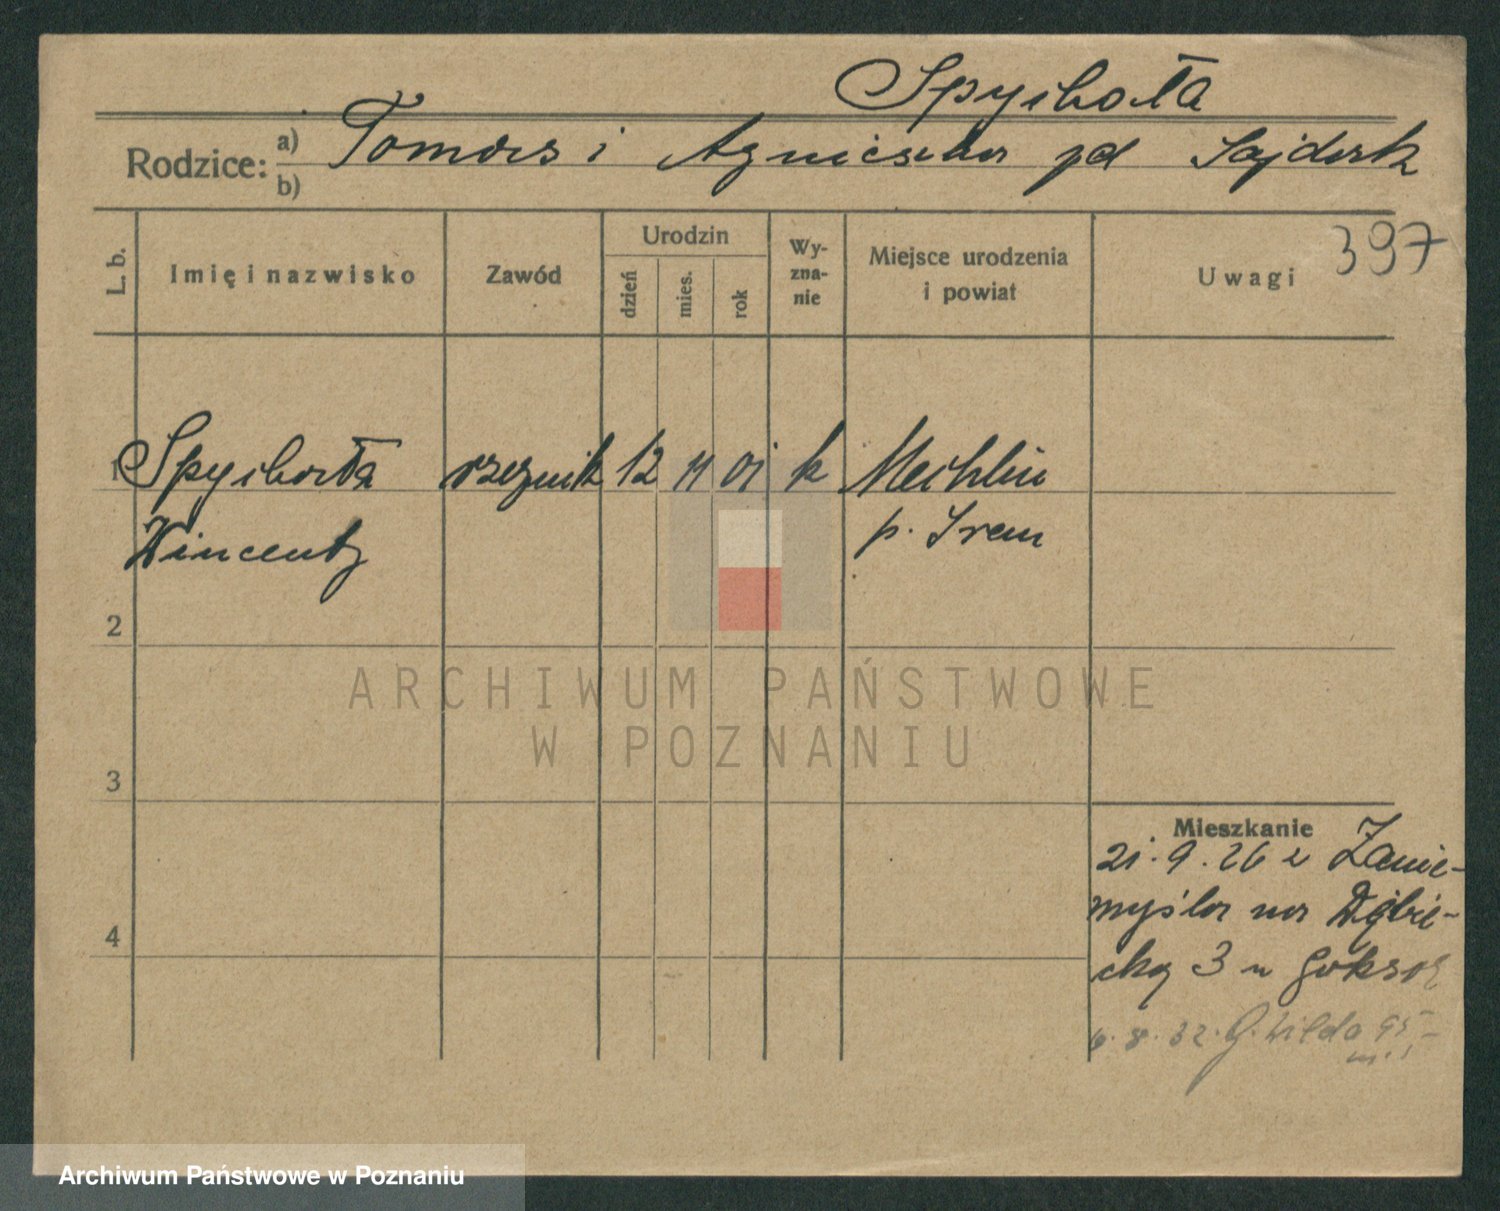 Spychała
Rodzice: a) Tomasz i Agnieszka zd Sajdak
b)
397
L. b. Imię i nazwisko Zawód Urodzin dzień mies. rok Wyzna-nie Miejsce urodzenia i powiat Uwagi
1 Spychała rzeźnik 12 11 01 k Mechlin
Wincenty p. Śrem
2
ARCHIWUM PAŃSTWOWE
W POZNANIU
3
Mieszkanie
21.9.26 z Zanie-
myśla na Dębie-
cką 3 u
4
6.8.32. G. Wilda 95
Archiwum Państwowe w Poznaniu